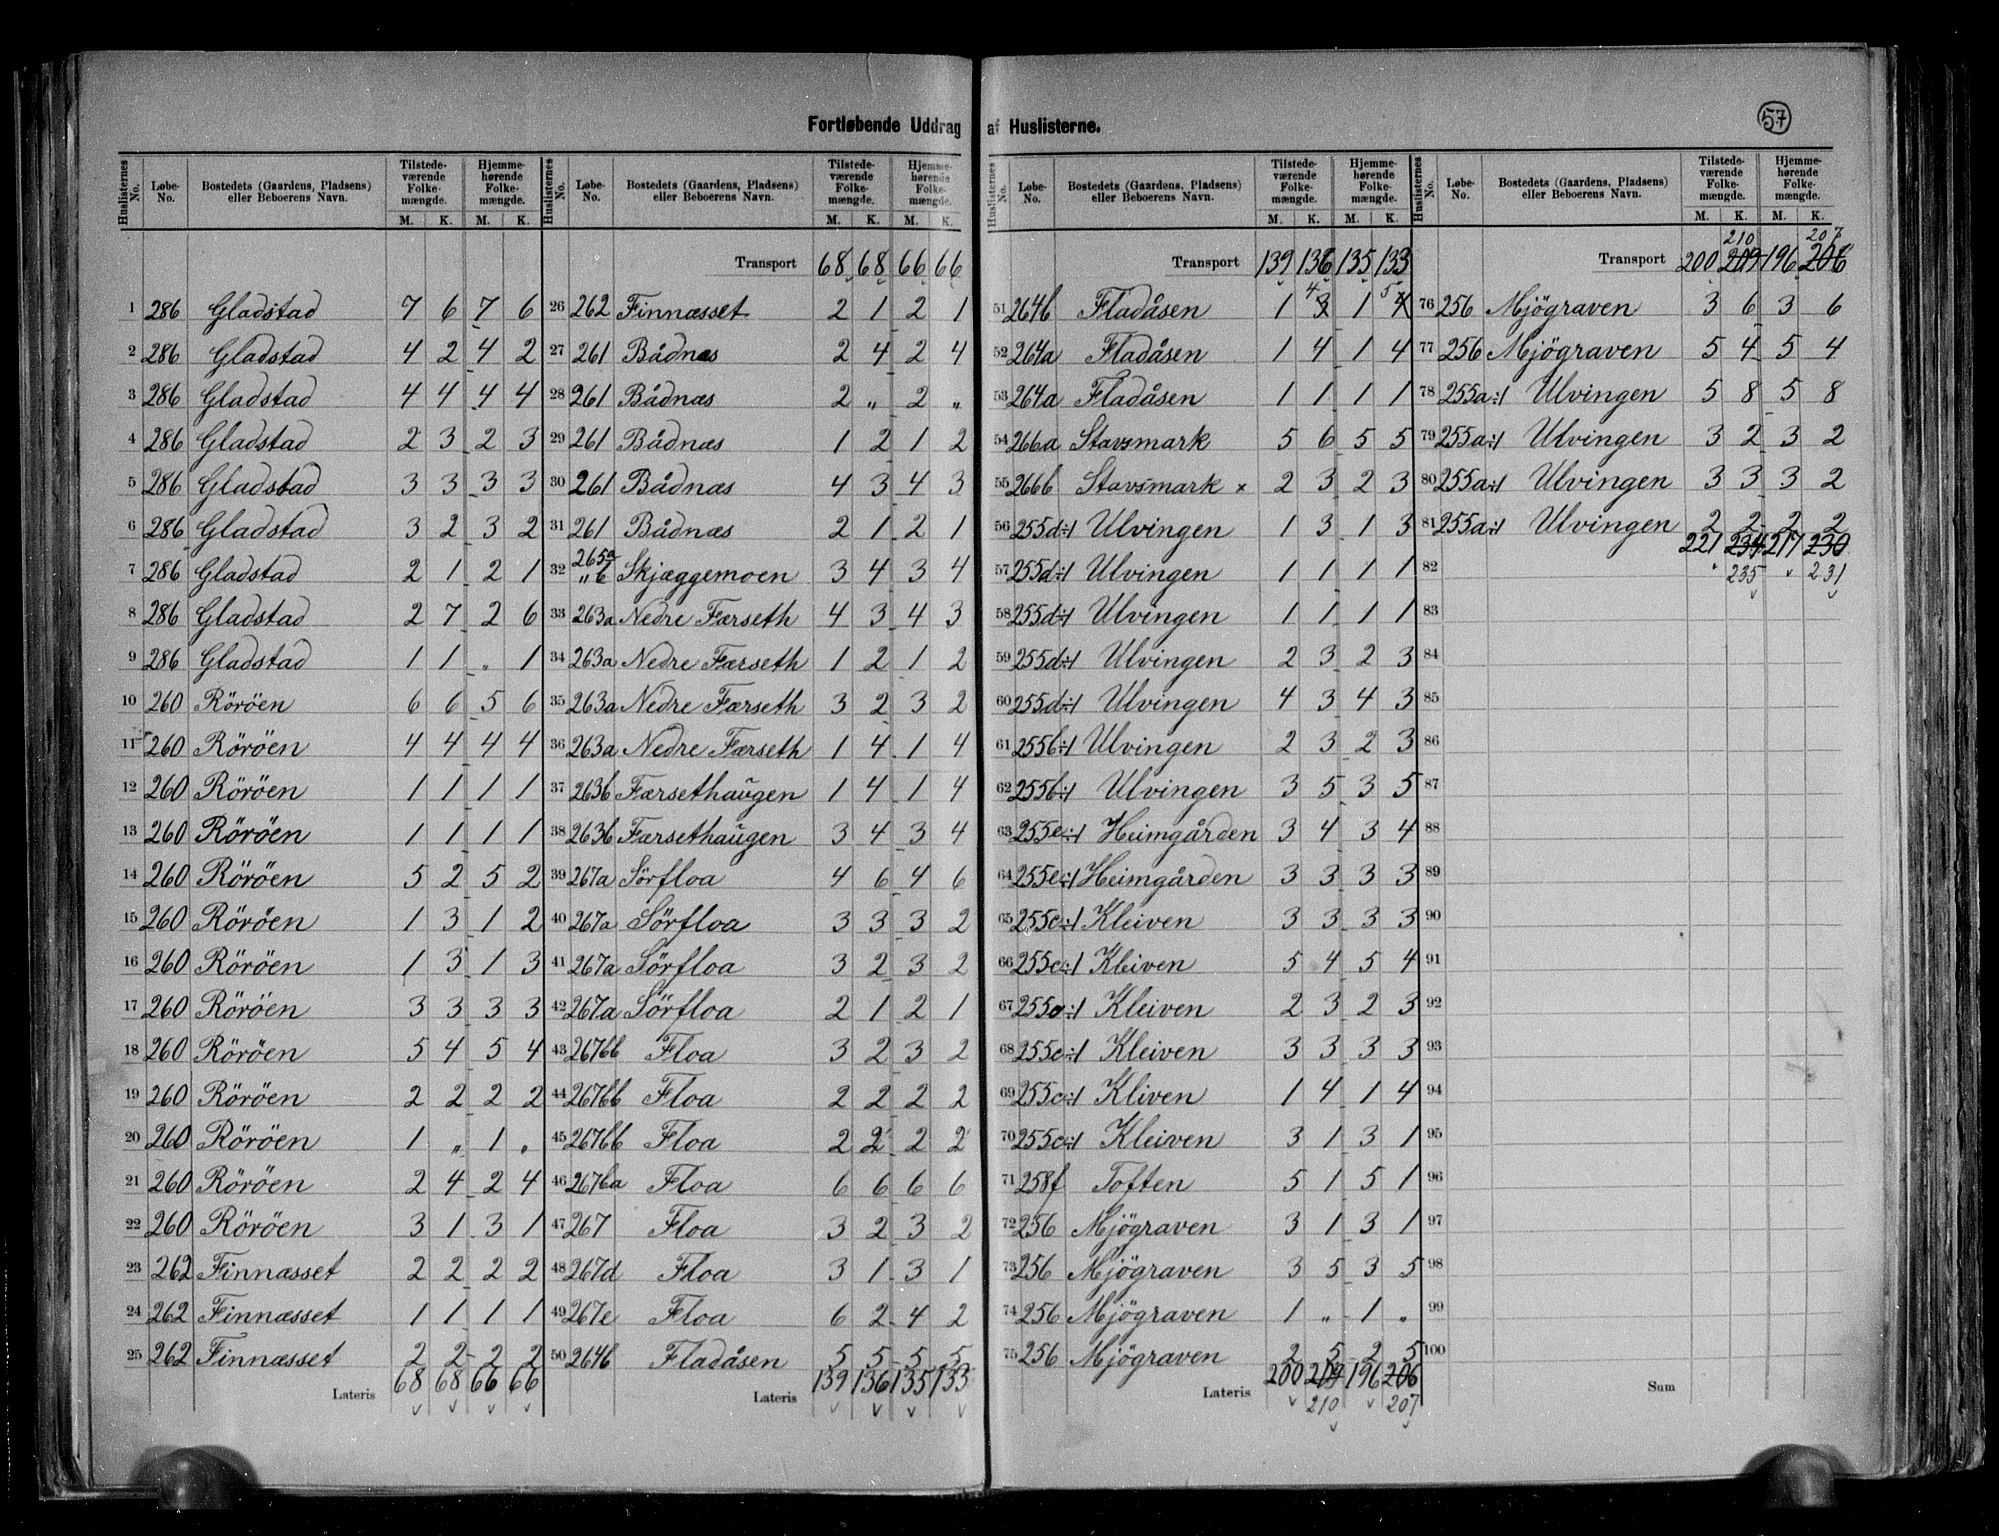 57
Fortløbende Uddrag af Huslisterne.
Huslisternes No. | Løbe-No. | Bostedets (Gaardens, Pladsens) eller Beboerens Navn. | Tilstede-værende Folke-mængde. M. K. | Hjemme-hørende Folke-mængde. M. K.
1 286 Gladstad 7 6 7 6
2 286 Gladstad 4 2 4 2
3 286 Gladstad 4 4 4 4
4 286 Gladstad 2 3 2 3
5 286 Gladstad 3 3 3 3
6 286 Gladstad 3 2 3 2
7 286 Gladstad 2 1 2 1
8 286 Gladstad 2 7 2 6
9 286 Gladstad 1 1 „ 1
10 260 Röröen 6 6 5 6
11 260 Röröen 4 4 4 4
12 260 Röröen 1 1 1 1
13 260 Röröen 1 1 1 1
14 260 Röröen 5 2 5 2
15 260 Röröen 1 3 1 2
16 260 Röröen 1 3 1 3
17 260 Röröen 3 3 3 3
18 260 Röröen 5 4 5 4
19 260 Röröen 2 2 2 2
20 260 Röröen 1 „ 1 „
21 260 Röröen 2 4 2 4
22 260 Röröen 3 1 3 1
23 262 Finnæsset 2 2 2 2
24 262 Finnæsset 1 1 1 1
25 262 Finnæsset 2 2 2 2
Lateris 68 68 66 66
Huslisternes No. | Løbe-No. | Bostedets (Gaardens, Pladsens) eller Beboerens Navn. | Tilstede-værende Folke-mængde. M. K. | Hjemme-hørende Folke-mængde. M. K.
Transport 68 68 66 66
26 262 Finnæsset 2 1 2 1
27 261 Bådnæs 2 4 2 4
28 261 Bådnæs 2 „ 2 „
29 261 Bådnæs 1 2 1 2
30 261 Bådnæs 4 3 4 3
31 261 Bådnæs 2 1 2 1
32 265a „ b Skjæggemoen 3 4 3 4
33 263a Nedre Færseth 4 3 4 3
34 263a Nedre Færseth 1 2 1 2
35 263a Nedre Færseth 3 2 3 2
36 263a Nedre Færseth 1 4 1 4
37 263b Færsethaugen 1 4 1 4
38 263b Færsethaugen 3 4 3 4
39 267a Sörfloa 4 6 4 6
40 267a Sörfloa 3 3 3 2
41 267a Sörfloa 3 2 3 2
42 267a Sörfloa 2 1 2 1
43 267bb Floa 3 2 3 2
44 267bb Floa 2 2 2 2
45 267bb Floa 2 2 2 2
46 267ba Floa 6 6 6 6
47 267 Floa 3 2 3 2
48 267d Floa 3 1 3 1
49 267e Floa 6 2 4 2
50 264b Fladåsen 5 5 5 5
Lateris 139 136 135 133
Huslisternes No. | Løbe-No. | Bostedets (Gaardens, Pladsens) eller Beboerens Navn. | Tilstede-værende Folke-mængde. M. K. | Hjemme-hørende Folke-mængde. M. K.
Transport 139 136 135 133
4 5
51 264b Fladåsen 1 3 1 4
52 264a Fladåsen 1 4 1 4
53 264a Fladåsen 1 1 1 1
54 266a Stavsmark 5 6 5 5
55 266b Stavsmark × 2 3 2 3
56 255d÷1 Ulvingen 1 3 1 3
57 255d÷1 Ulvingen 1 1 1 1
58 255d÷1 Ulvingen 1 1 1 1
59 255d÷1 Ulvingen 2 3 2 3
60 255d÷1 Ulvingen 4 3 4 3
61 255b÷1 Ulvingen 2 3 2 3
62 255b÷1 Ulvingen 3 5 3 5
63 255e÷1 Heimgården 3 4 3 4
64 255e÷1 Heimgården 3 3 3 3
65 255c÷1 Kleiven 3 3 3 3
66 255c÷1 Kleiven 5 4 5 4
67 255c÷1 Kleiven 2 3 2 3
68 255c÷1 Kleiven 3 3 3 3
69 255c÷1 Kliven 1 4 1 4
70 255c÷1 Kleiven 3 1 3 1
71 258f Toften 5 1 5 1
72 256 Mjögraven 3 1 3 1
73 256 Mjögraven 3 5 3 5
74 256 Mjögraven 1 „ 1 „
75 256 Mjögraven 2 5 2 5
Lateris 200 209 196 206
210 207
Huslisternes No. | Løbe-No. | Bostedets (Gaardens, Pladsens) eller Beboerens Navn. | Tilstede-værende Folke-mængde. M. K. | Hjemme-hørende Folke-mængde. M. K.
210 207
Transport 200 209 196 206
76 256 Mjögraven 3 6 3 6
77 256 Mjögraven 5 4 5 4
78 255a÷1 Ulvingen 5 8 5 8
79 255a÷1 Ulvingen 3 2 3 2
80 255a÷1 Ulvingen 3 3 3 2
81 255a÷1 Ulvingen 2 2 2 2
221 234 217 230
82 235 231
83
84
85
86
87
88
89
90
91
92
93
94
95
96
97
98
99
100
Sum